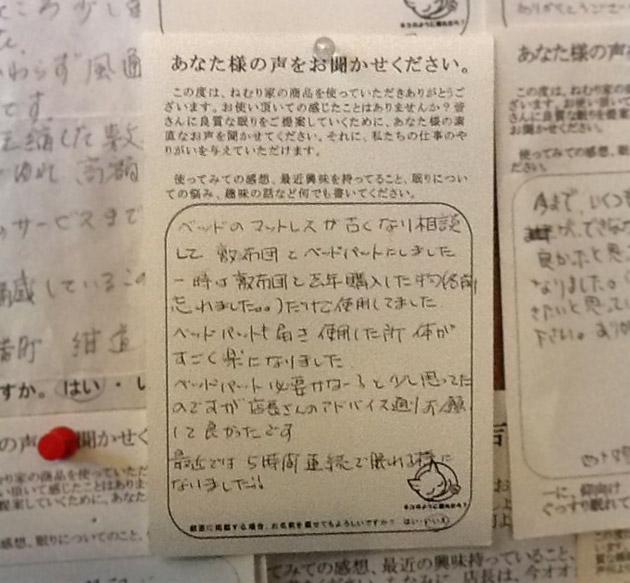 あなた様の声をお聞かせください。
この度は、ねむり家の商品を使っていただきありがとうご
ざいます。お使い頂いての感じたことはありませんか？皆
さんに良質な眠りをご提案していくために、あなた様の素
直なお声を聞かせてください。それに、私たちの仕事のや
りがいを与えていただけます。
使ってみての感想、最近興味を持ってること、眠りについ
ての悩み、趣味の話など何でも書いてください。
ベッドのマットレスが古くなり相談
して 敷布団とベッドパットにしました
一時は敷布団と去年購入した物(名前
忘れました。。)だけで使用してました
ベッドパットも届き 使用した所 体が
すごく楽になりました
ベッドパット必要かなーっと少し思ってた
のですが 店長さんのアドバイス通りお願い
して良かったです
最近では 5時間連続で眠れる様に
なりました!!
ネコのように眠れるかも？
紙面に掲載する場合、お名前を載せてもよろしいですか？ はい・いいえ
あなた様の声を
この度は、ねむり
ざいます。お使い
さんに良質な眠り
使ってみての感想、
良かったと思
なりました。
きたいと思ってい
下さい。
ころ 少し
風通
です。
サービスまで
しているこの
紺
すか。はい・い
聞かせく
り家の商品を使っていただ
てみての感想、最近の興味持っていること、
ぐっすり眠れて